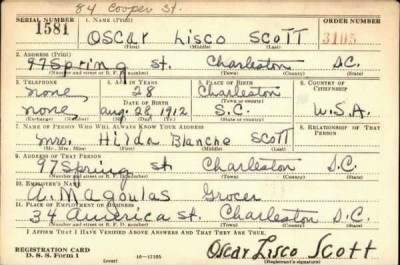 84 Cooper St.
SERIAL NUMBER 1. NAME (Print) ORDER NUMBER
1581 OSCAR LISCO SCOTT 3105
(First) (Middle) (Last)
2. ADDRESS (Print)
97 Spring St. Charleston S.C.
(Number and street or R. F. D. number) (Town) (County) (State)
3. TELEPHONE 4. AGE IN YEARS 5. PLACE OF BIRTH 6. COUNTRY OF CITIZENSHIP
none 28 Charleston
(Town or county)
DATE OF BIRTH
none Aug. 28, 1912 S.C. U.S.A.
(Exchange) (Number) (Mo.) (Day) (Yr.) (State or country)
7. NAME OF PERSON WHO WILL ALWAYS KNOW YOUR ADDRESS 8. RELATIONSHIP OF THAT PERSON
Mrs. Hilda Blanche Scott
(Mr., Mrs., Miss) (First) (Middle) (Last)
9. ADDRESS OF THAT PERSON
97 Spring St Charleston S.C.
(Number and street or R. F. D. number) (Town) (County) (State)
10. EMPLOYER'S NAME
A. Magoulas Grocer
11. PLACE OF EMPLOYMENT OR BUSINESS
34 America St. Charleston S.C.
(Number and street or R. F. D. number) (Town) (County) (State)
I AFFIRM THAT I HAVE VERIFIED ABOVE ANSWERS AND THAT THEY ARE TRUE.
REGISTRATION CARD
D. S. S. Form 1 (over) 16-17105 Oscar Lisco Scott
(Registrant's signature)